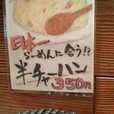 日本一
らーめんに合う!!
半チャーハン
350円